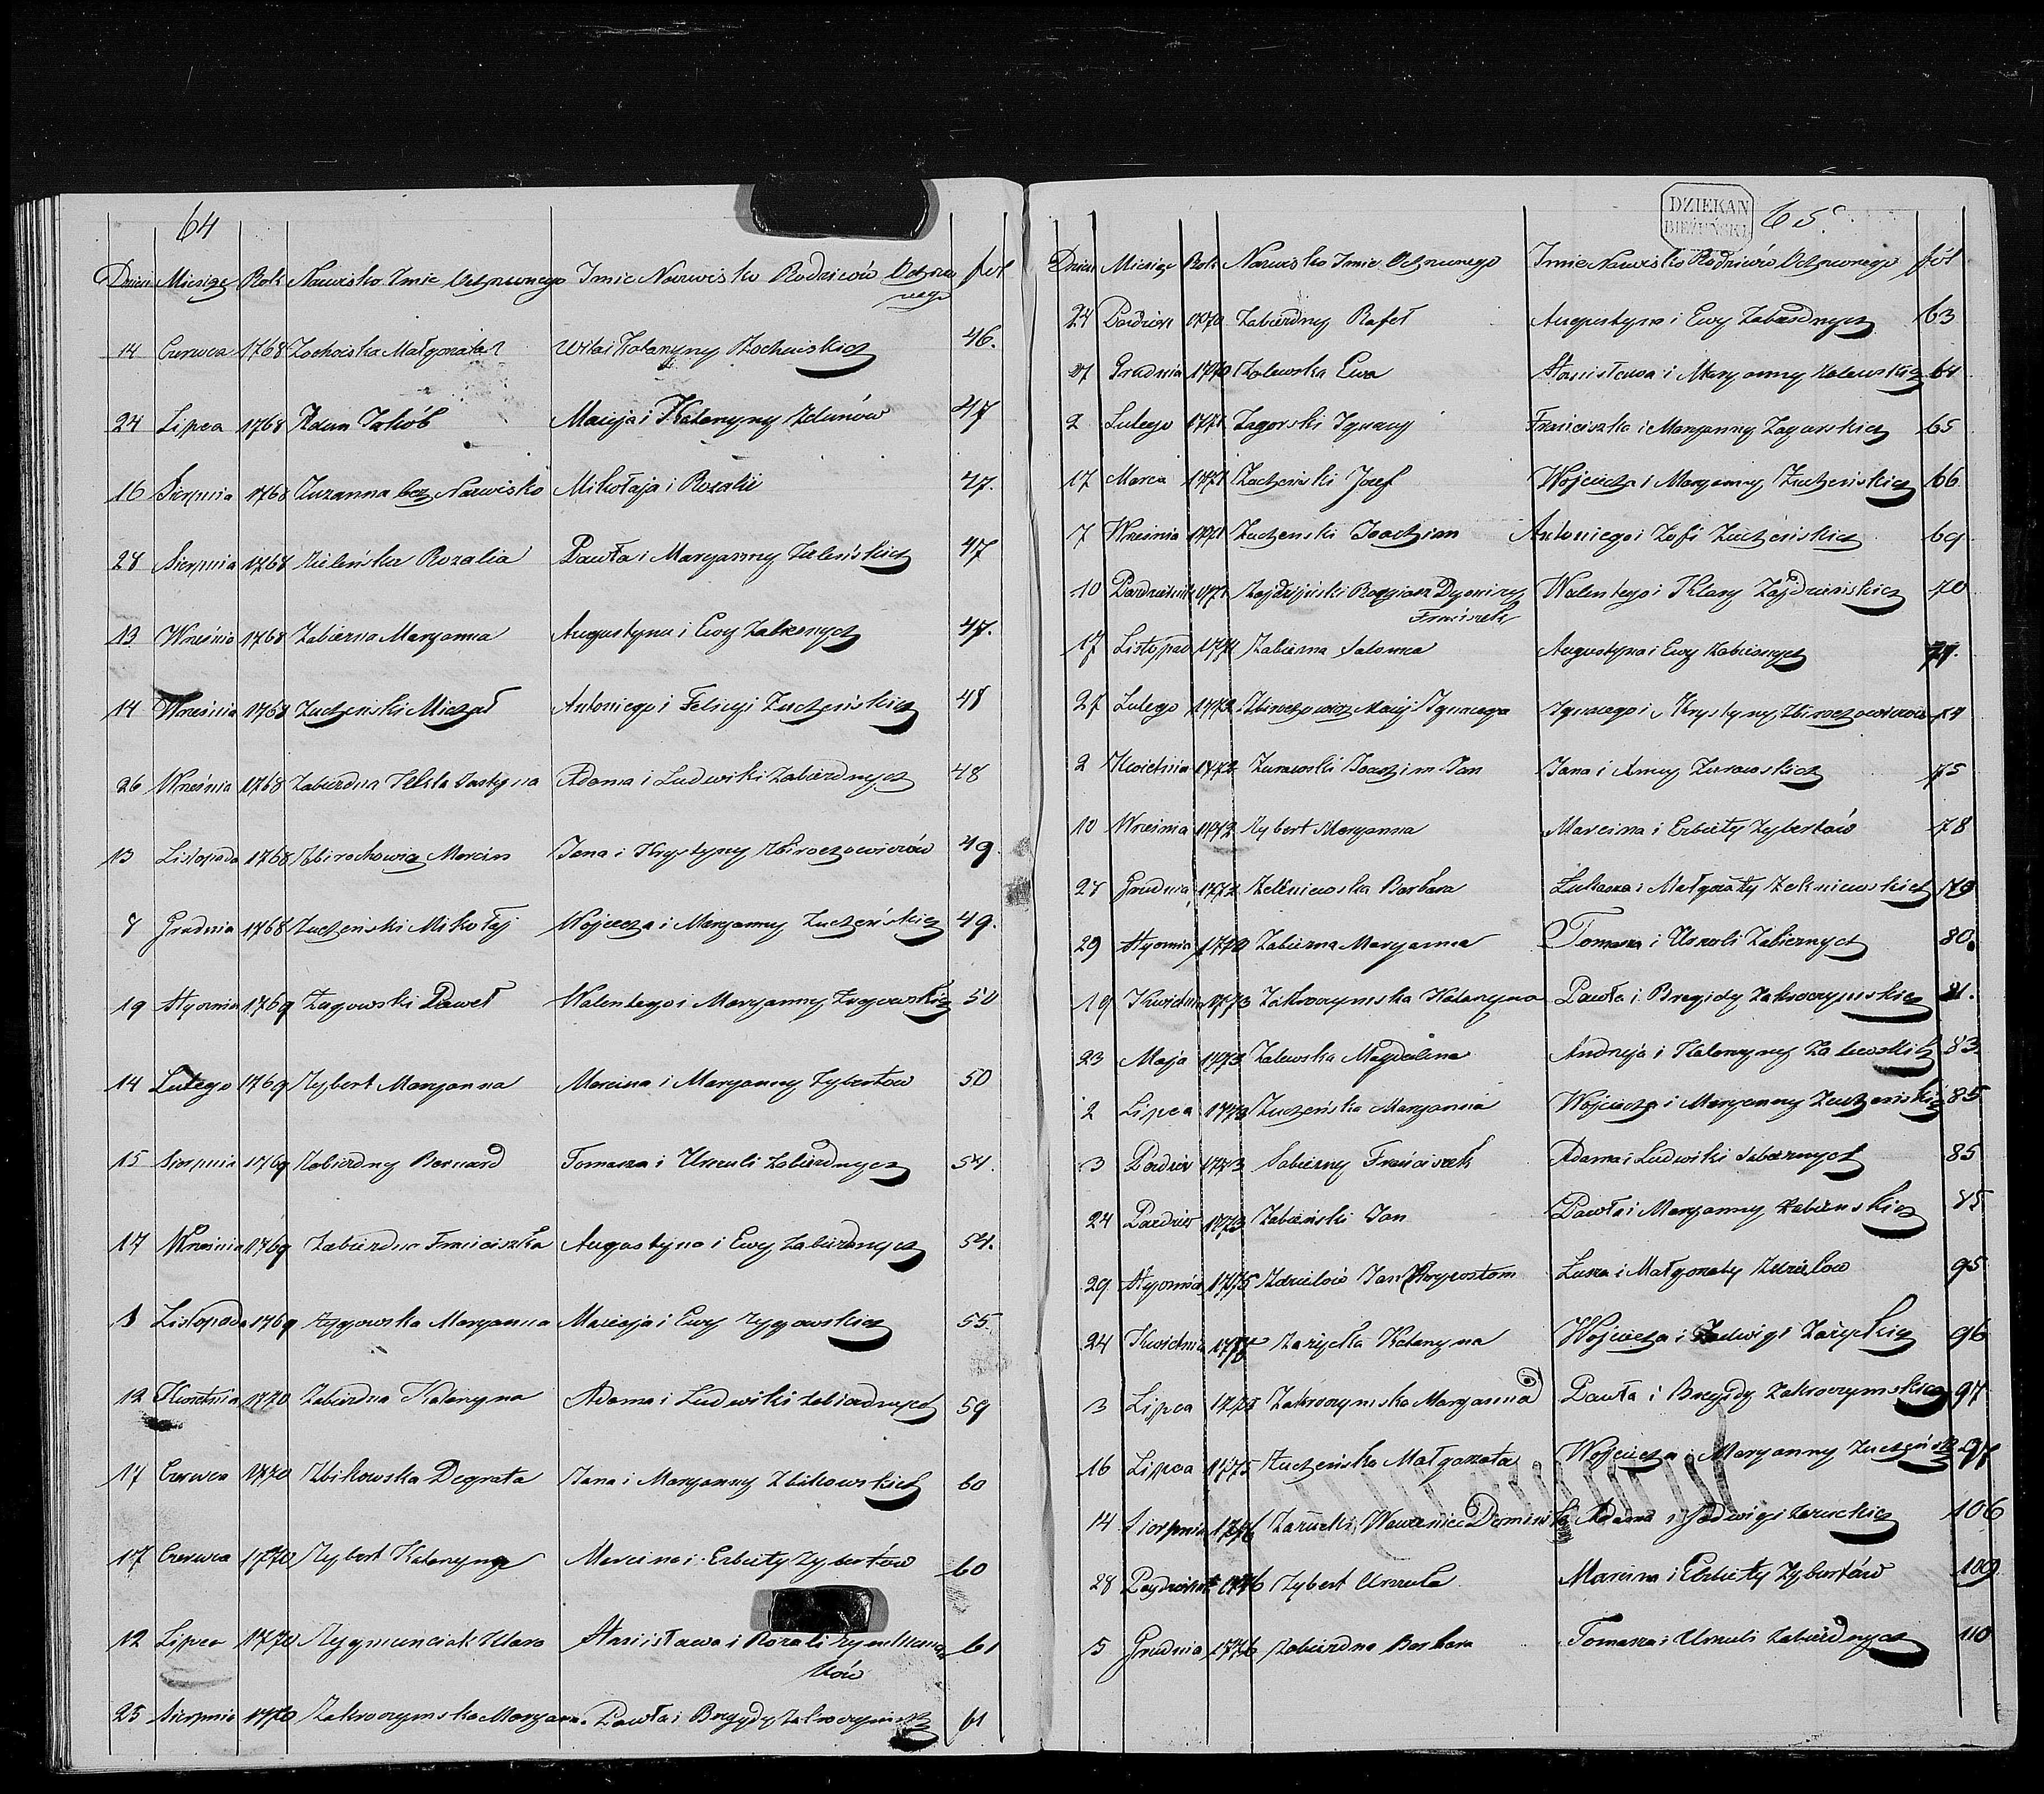 64
Dzień Miesiąc Rok Nazwisko Imie Ochrzconego Imie Nazwisko Rodziców Ochrzco fol
nego
14 Czerwca 1768 Zochoiska Małgorzata Wita i Katarzyny Zochoiskich 46.
24 Lipca 1768 Zdun Jakób Macieja i Katarzyny Zdunów 47
16 Sierpnia 1768 Zuzanna bez Nazwisko Mikołaja i Rozalii 47.
28 Sierpnia 1768 Zieleńska Rozalia Pawła i Maryanny Zieleńskich 47
13 Wrześnie 1768 Zabierna Maryanna Augustyna i Ewy Zabiernych 47.
14 Wrześnie 1768 Zucheński Michał Antoniego i Felicyi Zucheńskich 48
26 Wrześnie 1768 Zabierdna Tekla Justyna Adama i Ludwiki Zabierdnych 48
13 Listopada 1768 Zbirochowicz Marcin Jana i Krystyny Zbirochowiczów 49.
8 Grudnia 1768 Zucheński Mikołaj Wojciecha i Maryanny Zucheńskich 49.
19 Stycznia 1769 Zagowski Paweł Walentego i Maryanny Zagowskich 50
14 Lutego 1769 Zybert Maryanna Marcina i Maryanny Zybertow 50
15 Sierpnia 1769 Zabierdny Bernard Tomasza i Urszuli Zabierdnych 54.
17 Wrześnie 1769 Zabierdna Franciszka Augustyna i Ewy Zabierdnych 54.
1 Listopada 1769 Zygowska Maryanna Macieja i Ewy Zygowskich 55
12 Kwietnia 1770 Zabierdna Katarzyna Adama i Ludwiki Zabierdnych 59
17 Czerwca 1770 Zbikowska Degrata Jana i Maryanny Zbikowskich 60
17 Czerwca 1770 Zybert Katarzyna Marcina i Erbiety Zybertow 60
12 Lipca 1770 Zygmunciak Klara Stanisława i Rozali Zygmuncia 61
ków
25 Sierpnia 1770 Zakroczymska Maryann. Pawła i Brygidy Zakroczymsk 61
DZIEKAN
BIEŻUŃSKI
65.
Dzień Miesiąc Rok Nazwisko Imie Ochrzconego Imie Nazwisko Rodziców Ochrzconego fól
24 Paździer 1770 Zabierdny Rafeł Augustyna i Ewy Zabierdnych 63
27 Grudnia 1770 Zalewska Ewa Stanisława i Maryanny Zalewskich 64
2 Lutego 1771 Zagorski Ignacy Franciszka i Maryanny Zagorskich 65
17 Marca 1771 Zucheński Jozef Wojciecha i Maryanny Zucheńskich 66
7 Wrześnie 1771 Zucheński Joachim Antoniego i Zofi Zucheńskich 69
10 Październik 1771 Dyonizy Walentego i Klary Zajdzińskich 70
Franciszek
17 Listopad 1771 Zabierna Salomea Augustyna i Ewy Zabiernych 71.
27 Lutego 1772 Zbirochowicz Maciej Ignacego Ignacego i Krystyny Zbirochowiczów 74
2 Kwietnia 1772 Zurawski Joachim Jan Jana i Anny Zurawskich 75
10 Wrześnie 1772 Zybert Maryanna Marcina i Erbiety Zybertów 78
28 Grudnia 1772 Zelśniewska Barbara Łukasza i Małgorzaty 79
29 Stycznia Zabierna Maryanna Tomasza i Urszuli Zabiernych 80.
19 Kwietnia 1773 Zakroczymska Katarzyna Pawła i Bregidy Zakroczymskich 81.
23 Maja 1773 Zalewska Magdalena Andrzeja i Katarzyny Zalewskich 83
2 Lipca 1773 Zucheńska Maryanna Wojciecha i Maryanny Zucheńskich 85
3 Paździer 1773 Sabierny Franciszek Adama i Ludwiki Sabiernych 85
24 Paździer 1773 Zabieński Jan Pawła i Maryanny Zabieńskich 85
29 Stycznia 1775 Jan Chryzostom i Małgorzaty 95
24 Kwietnia Zarycka Katarzyna Wojciecha i Jadwigi Zaryckich 96
3 Lipca 1775 Zakroczymska Maryanna Pawła i Bregidy Zakroczymskich 97
16 Lipca 1775 Zucheńska Małgorzata Wojciecha i Maryanny Zucheńsk 97
14 Sierpnia 1776 Zarucki Wawrzniec Dominik Adama i Jadwigi Zaruckich 106
28 1776 Zybert Urszula Marcina i Elzbiety Zybertów 109
5 Grudnia 1776 Zabierdna Barbara Tomasza i Urszuli Zabierdnych 110